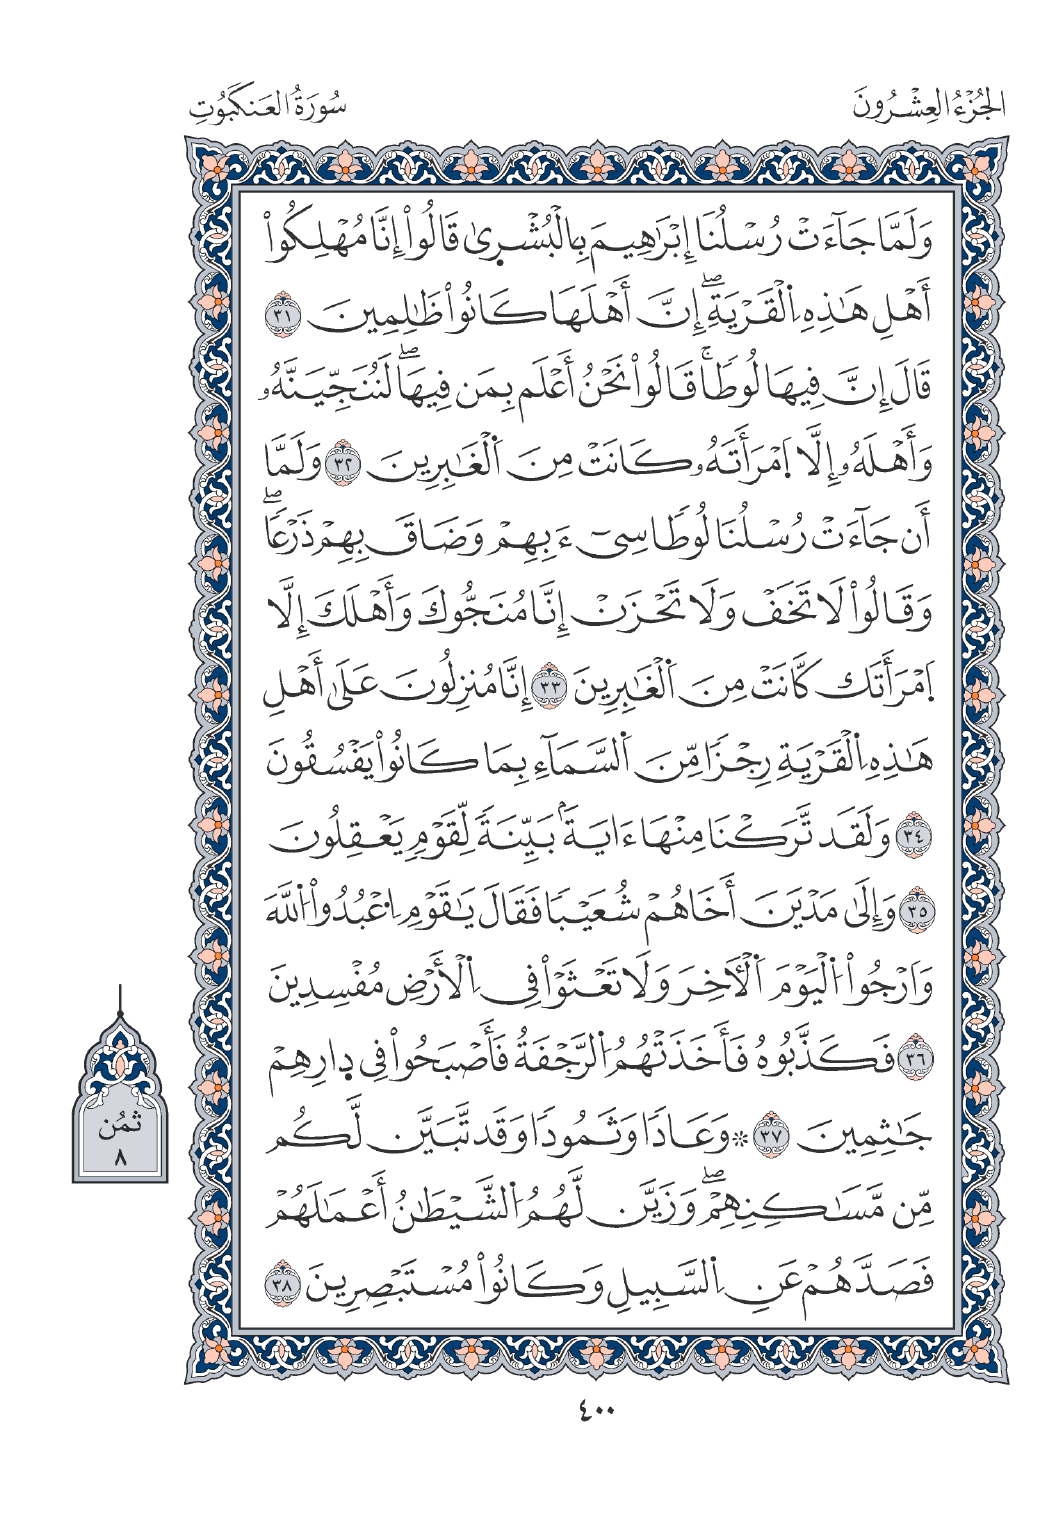 الجُزْءُ العِشْرُونَ
سُورَةُ العَنكَبُوتِ
وَلَمَّا جَآءَتْ رُسْلُنَا إِبْرَٰهِيمَ بِالْبُشْرِىٰ قَالُواْ إِنَّا مُهْلِكُواْ
أَهْلِ هَٰذِهِ اِ۬لْقَرْيَةِۖ إِنَّ أَهْلَهَا كَانُواْ ظَٰلِمِينَ ٣١
قَالَ إِنَّ فِيهَا لُوطَاۚ قَالُواْ نَحْنُ أَعْلَم بِمَن فِيهَاۖ لَنُنَجِّيَنَّهُۥ
وَأَهْلَهُۥ إِلَّا اَ۪مْرَأَتَهُۥ كَانَتْ مِنَ اَ۬لْغَٰبِرِينَ ٣٢ وَلَمَّا
أَن جَآءَتْ رُسْلُنَا لُوطَا سِيٓءَ بِهِمْ وَضَاقَ بِهِمْ ذَرْعَاۖ
وَقَالُواْ لَا تَخَفْ وَلَا تَحْزَنْ إِنَّا مُنَجُّوكَ وَأَهْلَكَ إِلَّا
اَ۪مْرَأَتَك كَّانَتْ مِنَ اَ۬لْغَٰبِرِينَ ٣٣ إِنَّا مُنزِلُونَ عَلَىٰ أَهْلِ
هَٰذِهِ اِ۬لْقَرْيَةِ رِجْزَا مِّنَ اَ۬لسَّمَآءِ بِمَا كَانُواْ يَفْسُقُونَ
٣٤ وَلَقَد تَّرَكْنَا مِنْهَا ءَايَةَۢ بَيِّنَةَ لِّقَوْمِ يَعْقِلُونَ
٣٥ وَإِلَىٰ مَدْيَنَ أَخَاهُمْ شُعَيْبَا فَقَالَ يَٰقَوْمِ اِ۟عْبُدُواْ اُ۬للَّهَ
وَارْجُواْ اُ۬لْيَوْمَ اَ۬لْأٓخِرَ وَلَا تَعْثَوْاْ فِي اِ۬لْأَرْضِ مُفْسِدِينَ
٣٦ فَكَذَّبُوهُ فَأَخَذَتْهُمُ اُ۬لرَّجْفَةُ فَأَصْبَحُواْ فِي دِارِهِمْ
جَٰثِمِينَ ٣٧ ۞ وَعَادَا وَثَمُودَا وَقَد تَّبَيَّن لَّكُم
مِّن مَّسَٰكِنِهِمْۖ وَزَيَّن لَّهُمُ اُ۬لشَّيْطَٰنُ أَعْمَٰلَهُمْ
فَصَدَّهُمْ عَنِ اِ۬لسَّبِيلِ وَكَانُواْ مُسْتَبْصِرِينَ ٣٨
ثمُن
٨
٤٠٠